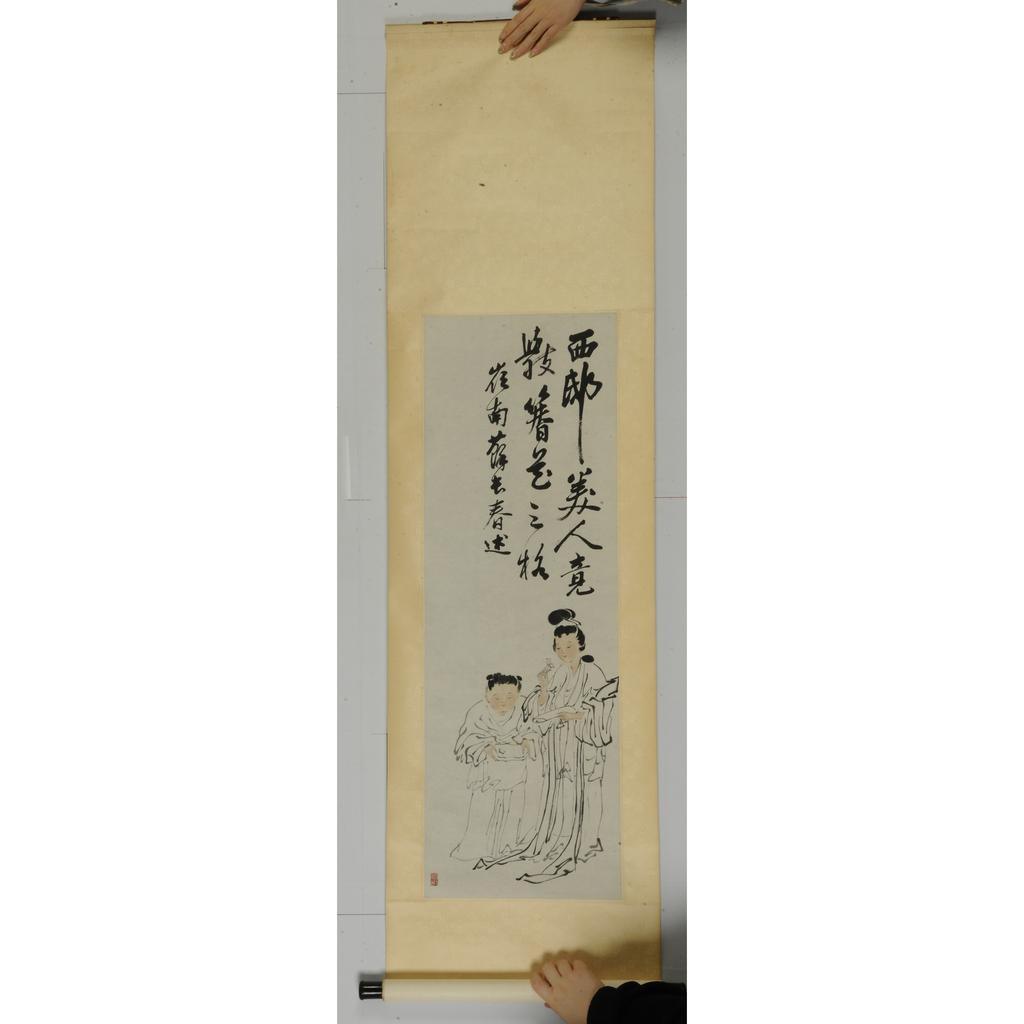 西邸美人竟
簪花之格
嶺南蘇長春述